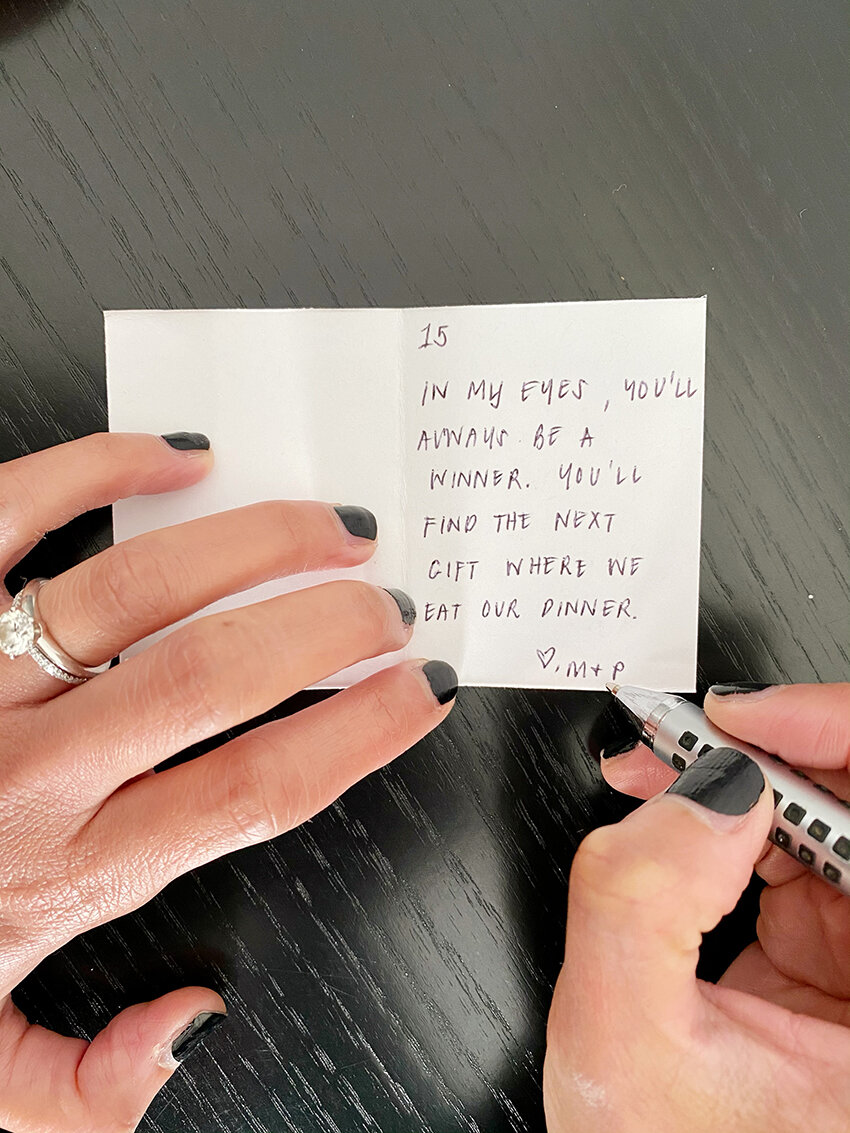 15
IN MY EYES, YOU'LL
ALWAYS BE A
WINNER. YOU'LL
FIND THE NEXT
GIFT WHERE WE
EAT OUR DINNER.
♡, M + P